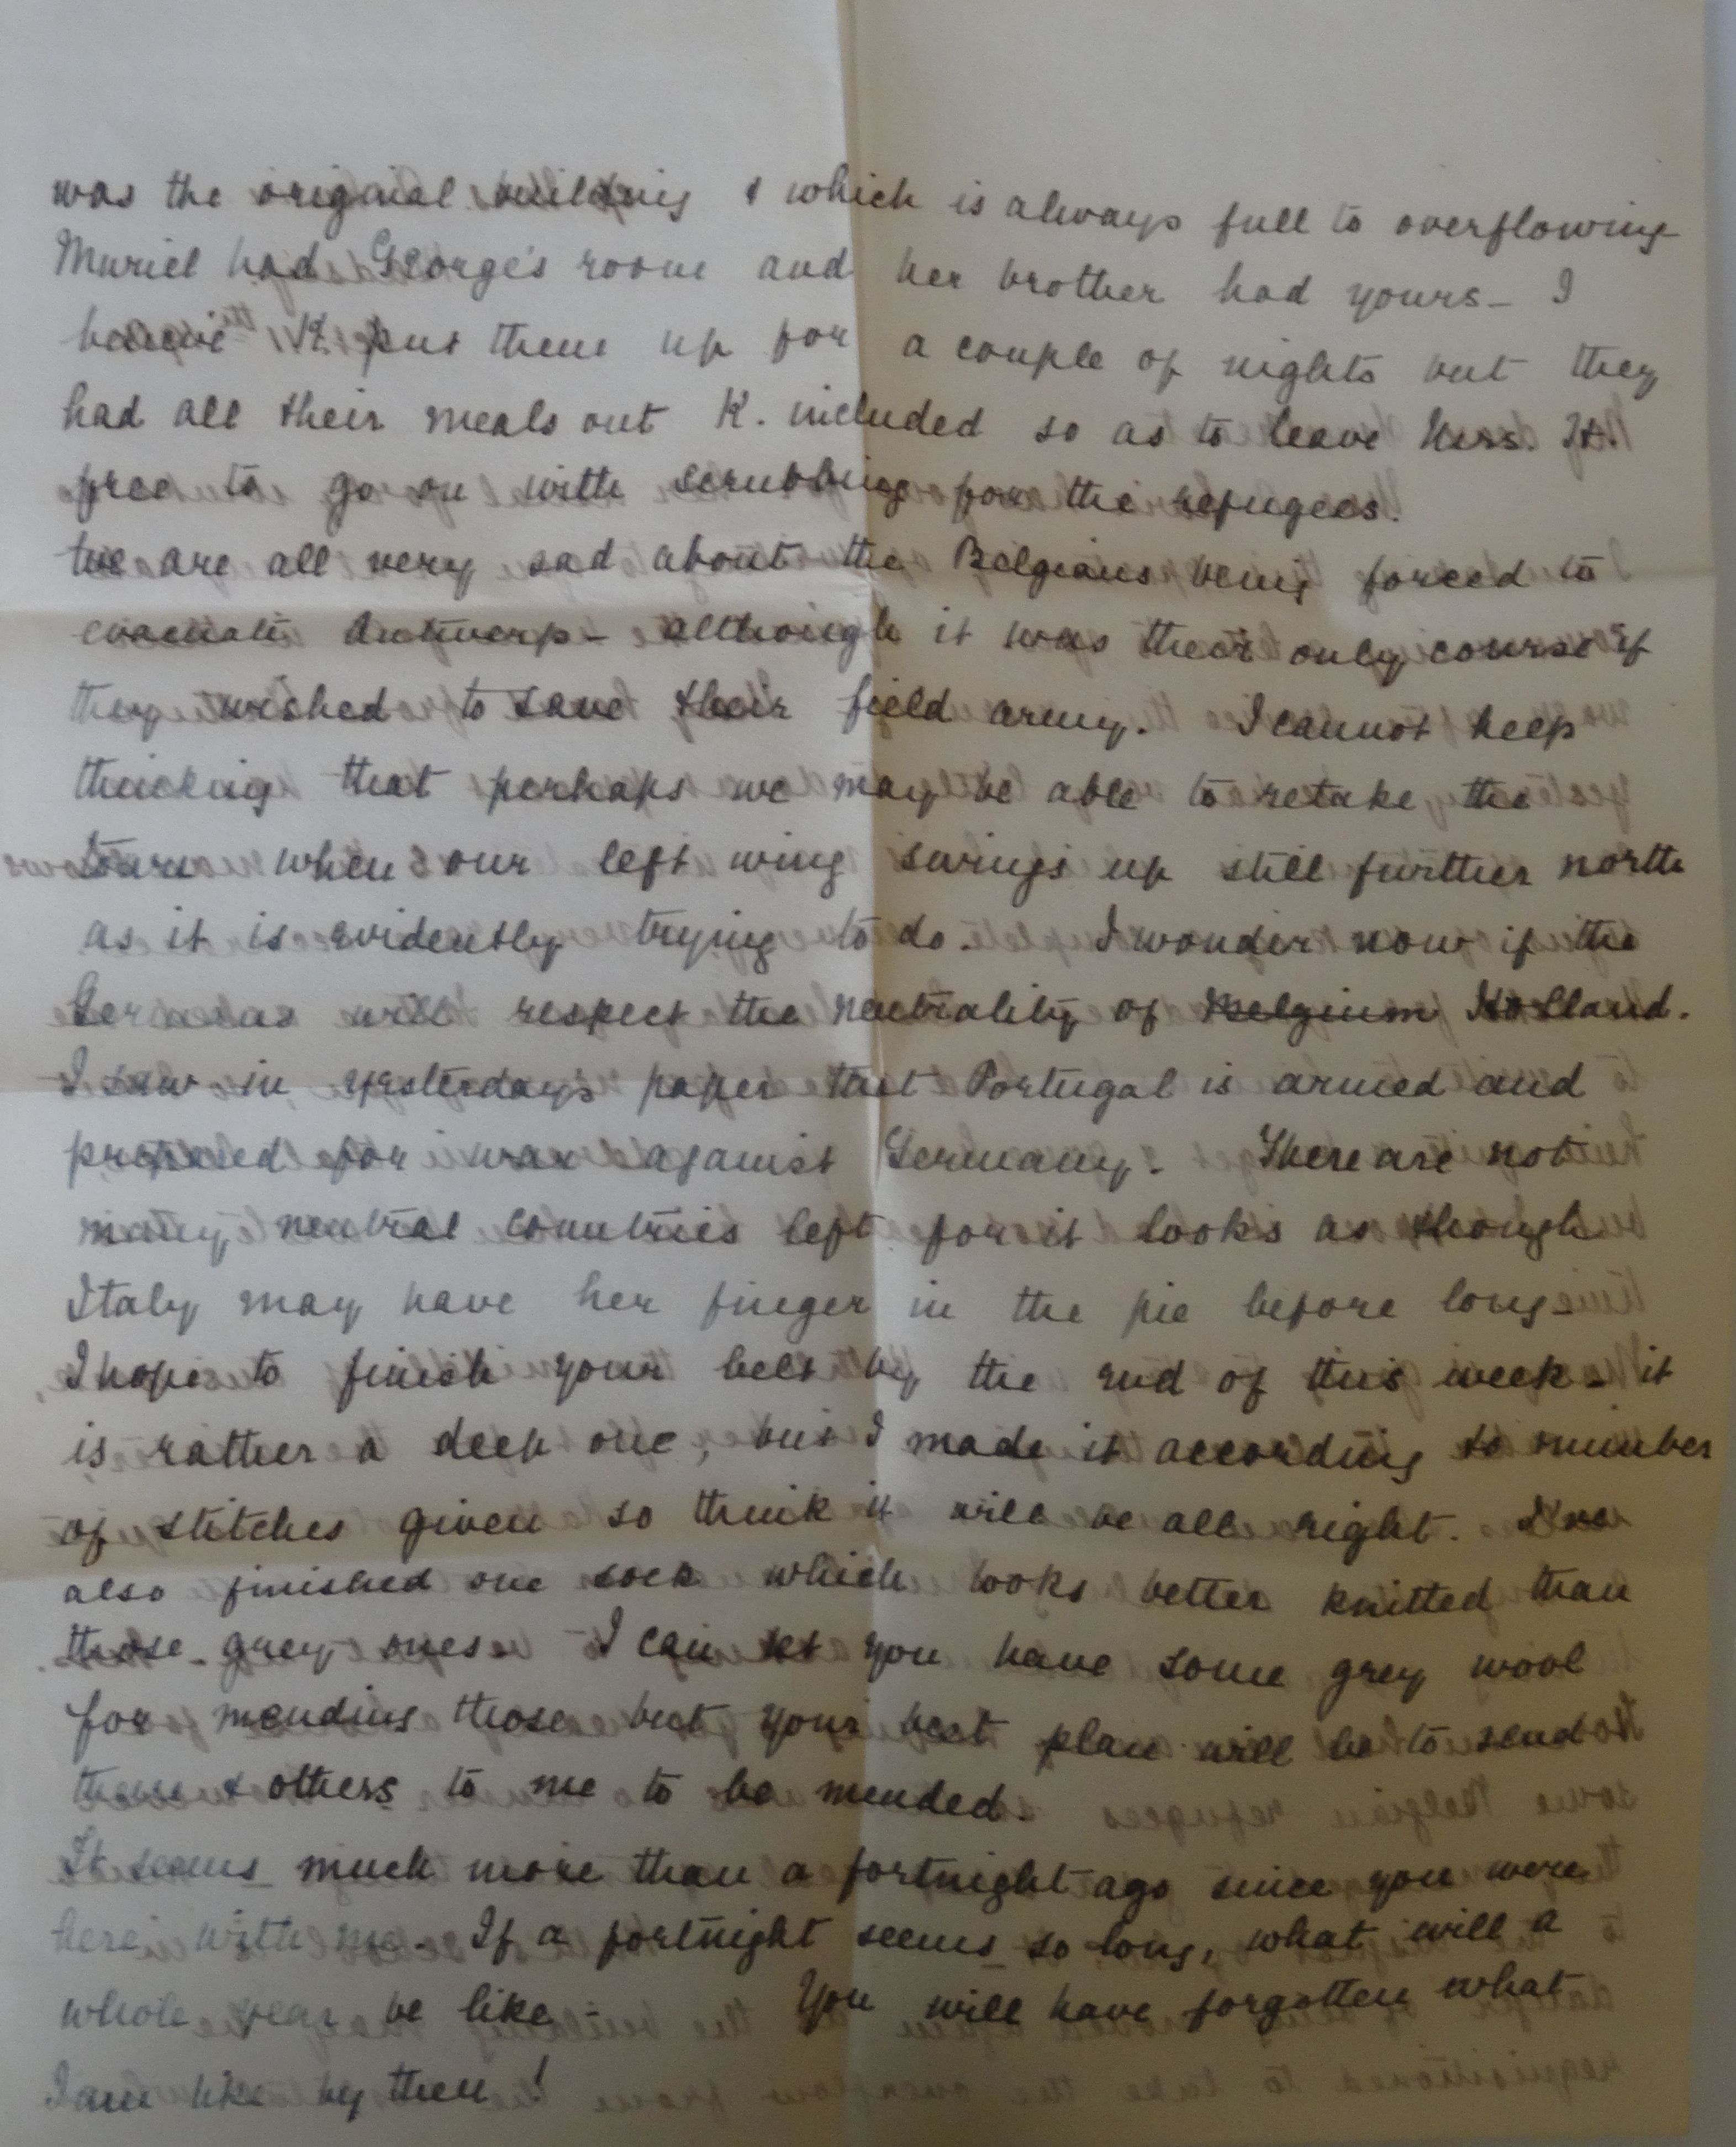 was the original building & which is always full to overflowing
Muriel had George's room and her brother had yours – I
believe K. put them up for a couple of nights but they
had all their meals out K. included so as to leave Mrs. H.
free to go on with scrubbing for the refugees.
We are all very sad about the Belgians being forced to
evacuate Antwerp – although it was their only course if
they wished to save their field army. I cannot keep
thinking that perhaps we may be able to retake the
town when our left wing swings up still further north
as it is evidently trying to do. I wonder now if the
Germans will respect the neutrality of Belgium Holland.
I saw in yesterday's paper that Portugal is armed and
prepared for war against Germany. There are not
many neutral countries left for it looks as though
Italy may have her finger in the pie before long –
I hope to finish your belt by the end of this week – it
is rather a deep one, but I made it according to number
of stitches given so think it will be all right. I've
also finished one sock which looks better knitted than
those grey ones. I can let you have some grey wool
for mending those but your best plan will be to send
them & others to me to be mended.
It seems much more than a fortnight ago since you were
here with me. If a fortnight seems so long, what will a
whole year be like – You will have forgotten what
I am like by then!